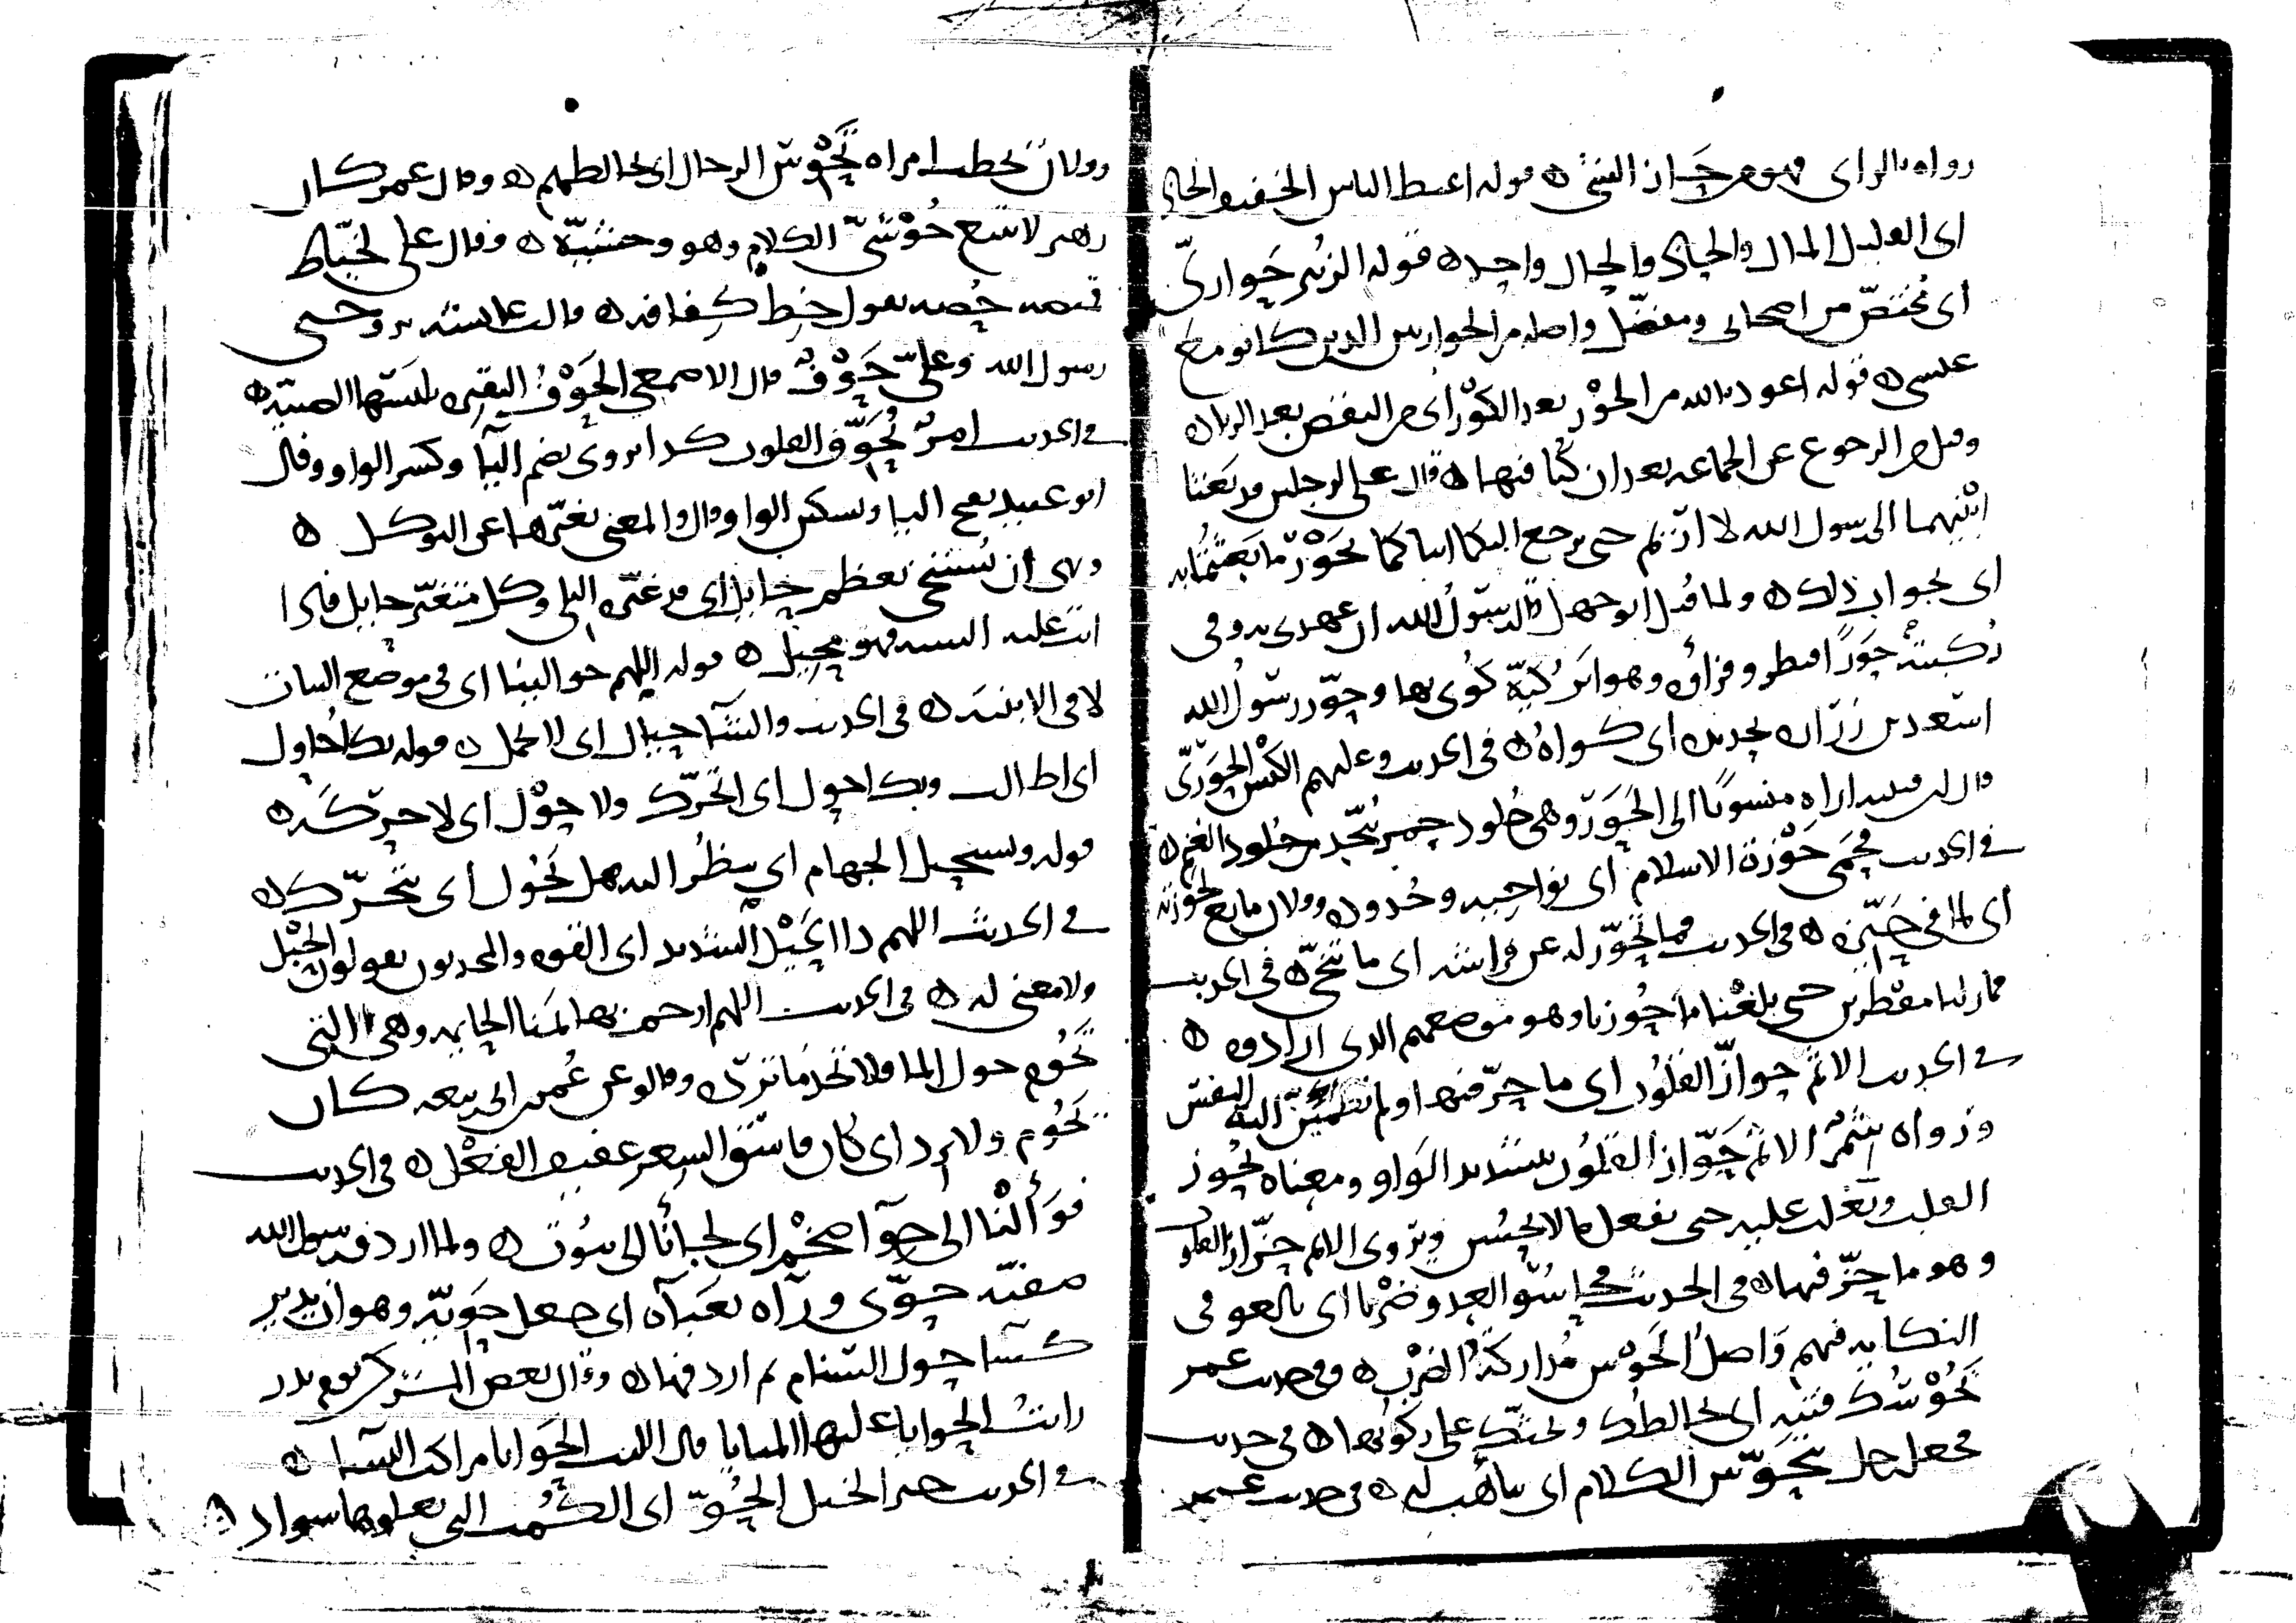 رواه بالراى فهو من حاذ الشئ ه قوله اغبط الناس الخفيف الحاذ
اى القليل المال والحاذ والحال واحد ه قوله الزبير حوارىّ
اى مختصّ من اصحابى ومفضّل واصله من الحواريين الذين كانوا مع
عيسى ه قوله اعوذ بالله من الحَوْر بعد الكَوْر اى من النقص بعد الزيادة
وقيل من الرجوع عن الجماعه بعد ان كنا فيها ه قال على لرجلين قد بعثنا
ابنيهما الى رسول الله لا ارَيم حتى يرجع اليكما ابناكما بحَوْر ما بعثتما به
اى بجواب ذلك ه ولما قتل ابو جهل قال رسول الله ان عهدى به وفى
ركبته حَوَرٌ فنظروا فرأوه وهو اثر كيّة كوى بها وحوّر رسول الله
اسعد بن زرارة بحديدة اى كواه ه فى الحديث وعليهم الكبش الحَوَرىّ
قال ابن قتيبه اراه منسوبًا الى الحَوَر وهى جلود حمر تتخذ من جلود الغنم ه
فى الحديث فحمى حَوْزة الاسلام اى نواحيه وحدوده وفلان مانع لحوزته
اى لما فى حيّزه ه فى الحديث فما تحوّز له عن فراشه اى ما تنحّى ه فى الحديث
فما زلنا مفطرين حتى بلغنا ماحُوزنا وهو موضعهم الذى ارادوه ه
فى الحديث الاثم حوازّ القلوب اى ما حزّ فيها ولم تطمئنّ اليه النفس
ورواه شمر الاثم حَوّاز القلوب بتشديد الواو ومعناه يحوز
القلب ويغلب عليه حتى يفعل ما لا يحسُن ويروى الاثم حزّاز القلوب
وهو ما حزّ فيها ه فى الحديث فحاسُوا العدو ضربا اى بالغوا فى
النكايه فيهم واصل الحَوْس مُداركةُ الضرب ه وفى حديث عمر
تَحُوْسُك فتنه اى تخالطك وتحثّك على ركوبها ه فى حديث
فجعل رجل يتحوّس الكلام اى يتأهب له ه فى حديث عمر
وفلان يخطب امراه تَحُوْس الرجال اى تخالطهم ه وقال عمر كان
زهير لا يتبع حُوْشىّ الكلام وهو وحشيّه ه وقال على لخيّاط
قميصه حُصه يقول خِط كفافه ه قالت عائشه تزوجنى
رسول الله وعلىّ حَوْفٌ قال الاصمعى الحَوْفُ البقيره يلبسها الصبيّه ه
فى الحديث امرٌ يُحَوّف القلوب كذا يروى بضم اليآ وكسر الواو وقال
ابو عبيد بفتح اليا وتسكين الواو وقال والمعنى يغيّرها عن التوكل ه
ونهى ان يُستنجى بعظم حائل اى قد غيّره البلى وكل متغيّر حايل فاذا
اتت عليه السنه فهو محيل ه قوله اللهم حوالينا اى فى موضع النبات
لا فى الابنيه ه فى الحديث والشآ حيال اى لا تحمل ه قوله بك احاول
اى اطالب وبك احول اى اتحرّك ولا حَوْل اى لا حركه ه
قوله ونستحيل الجهام اى ينظر اليه هل تَحُول اى تتحرّك ه
فى الحديث اللهم ذا الحَيْل الشديد اى القوه والمحدثون يقولون الحَبْل
ولا معنى له ه فى الحديث اللهم ارحم بهائمنا الحايمه وهى التى
تَحُوم حول الما فلا تجد ما تردّه وقالوا عن عُمر بن ابى ربيعه كان
يَحُوم ولا يرد اى كان فاسق الشعر عفيف الفعل ه فى الحديث
فوَأَلْنا الى حِوآ ضخم اى لجأنا الى بيوت ه ولما اردف رسول الله
صفيّه حوّى ورآه بعبآه اى جعل حَويّه وهو ان يدير
كسآا حول السنام ثم اردفها ه وقال بعض المشركين يوم بدر
رايت الحوايا عليها المنايا قال الليث الحَوايا مراكب النسآ ه
فى الحديث خير الخيل الحُوّ اى الكُمت التى يعلوها سواد ه